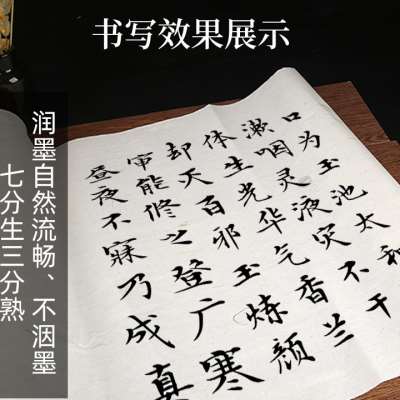 书写效果展示
润墨自然流畅、不洇墨
七分生三分熟
口为玉池太和
漱咽灵液灾不干
体生光华气香兰
却灭百邪玉炼颜
审能修之登广寒
昼夜不寐乃成真